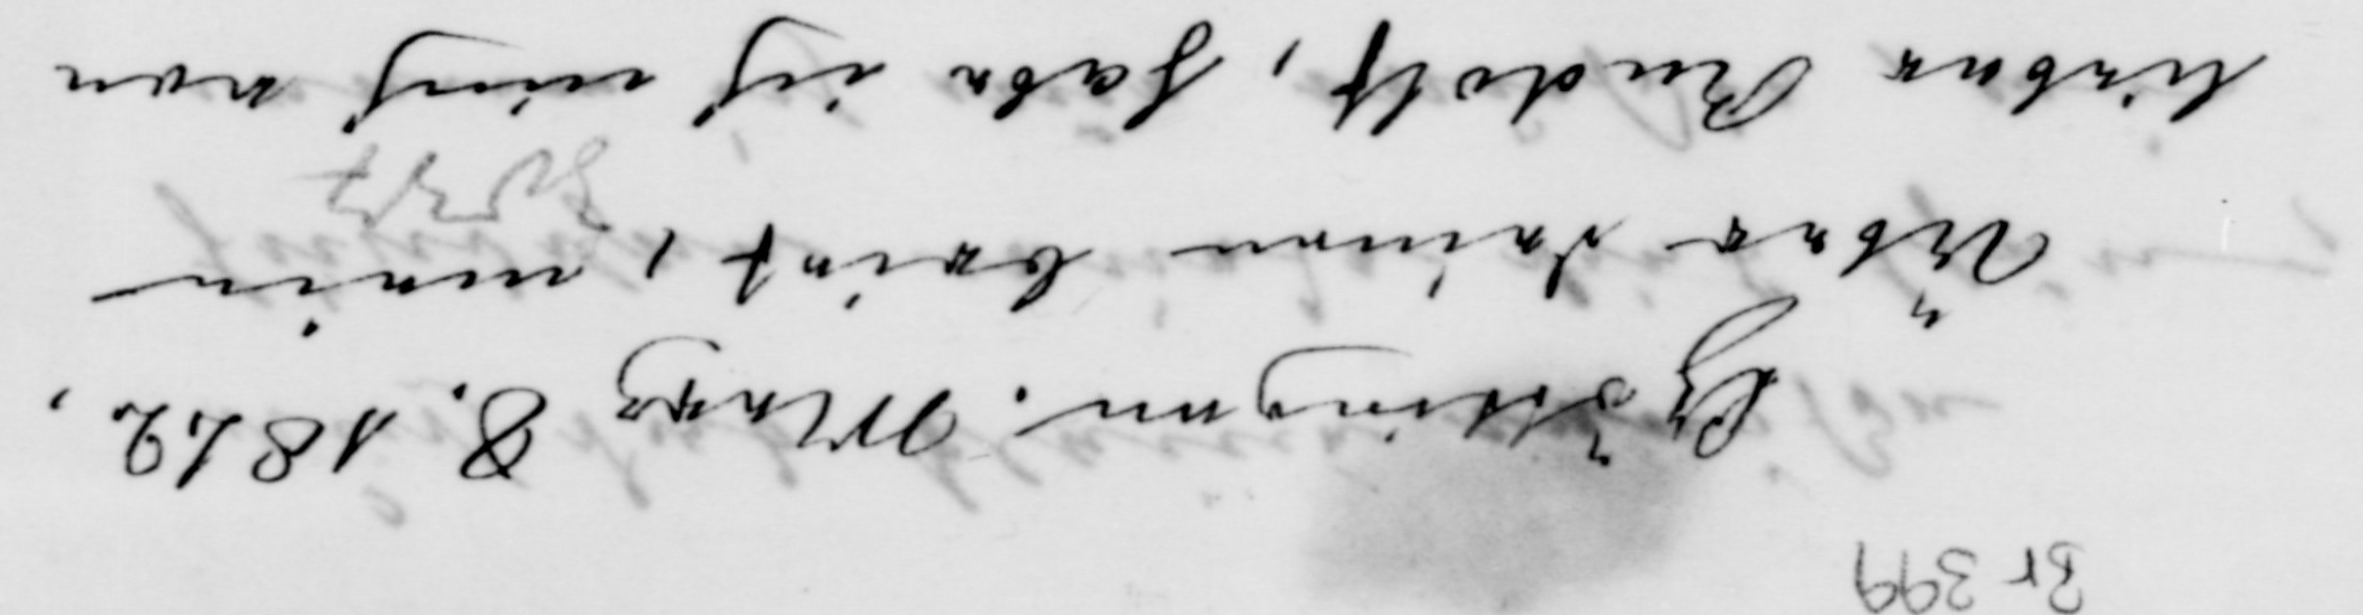 Br 399
Göttingen. Maerz 8. 1862,
Über deinen Brief, mein
lieber Rudolf, habe ich mich von